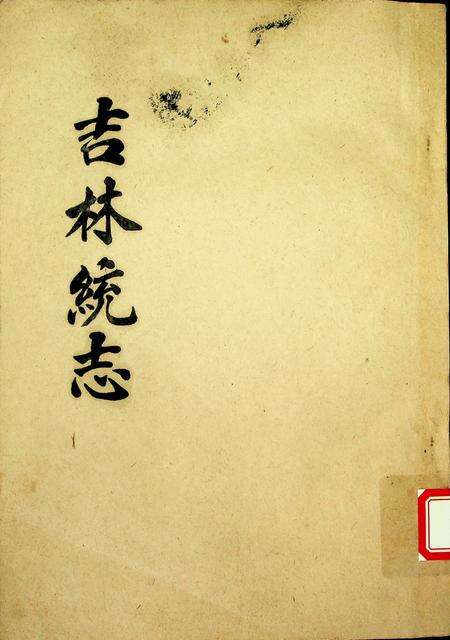 吉林統志